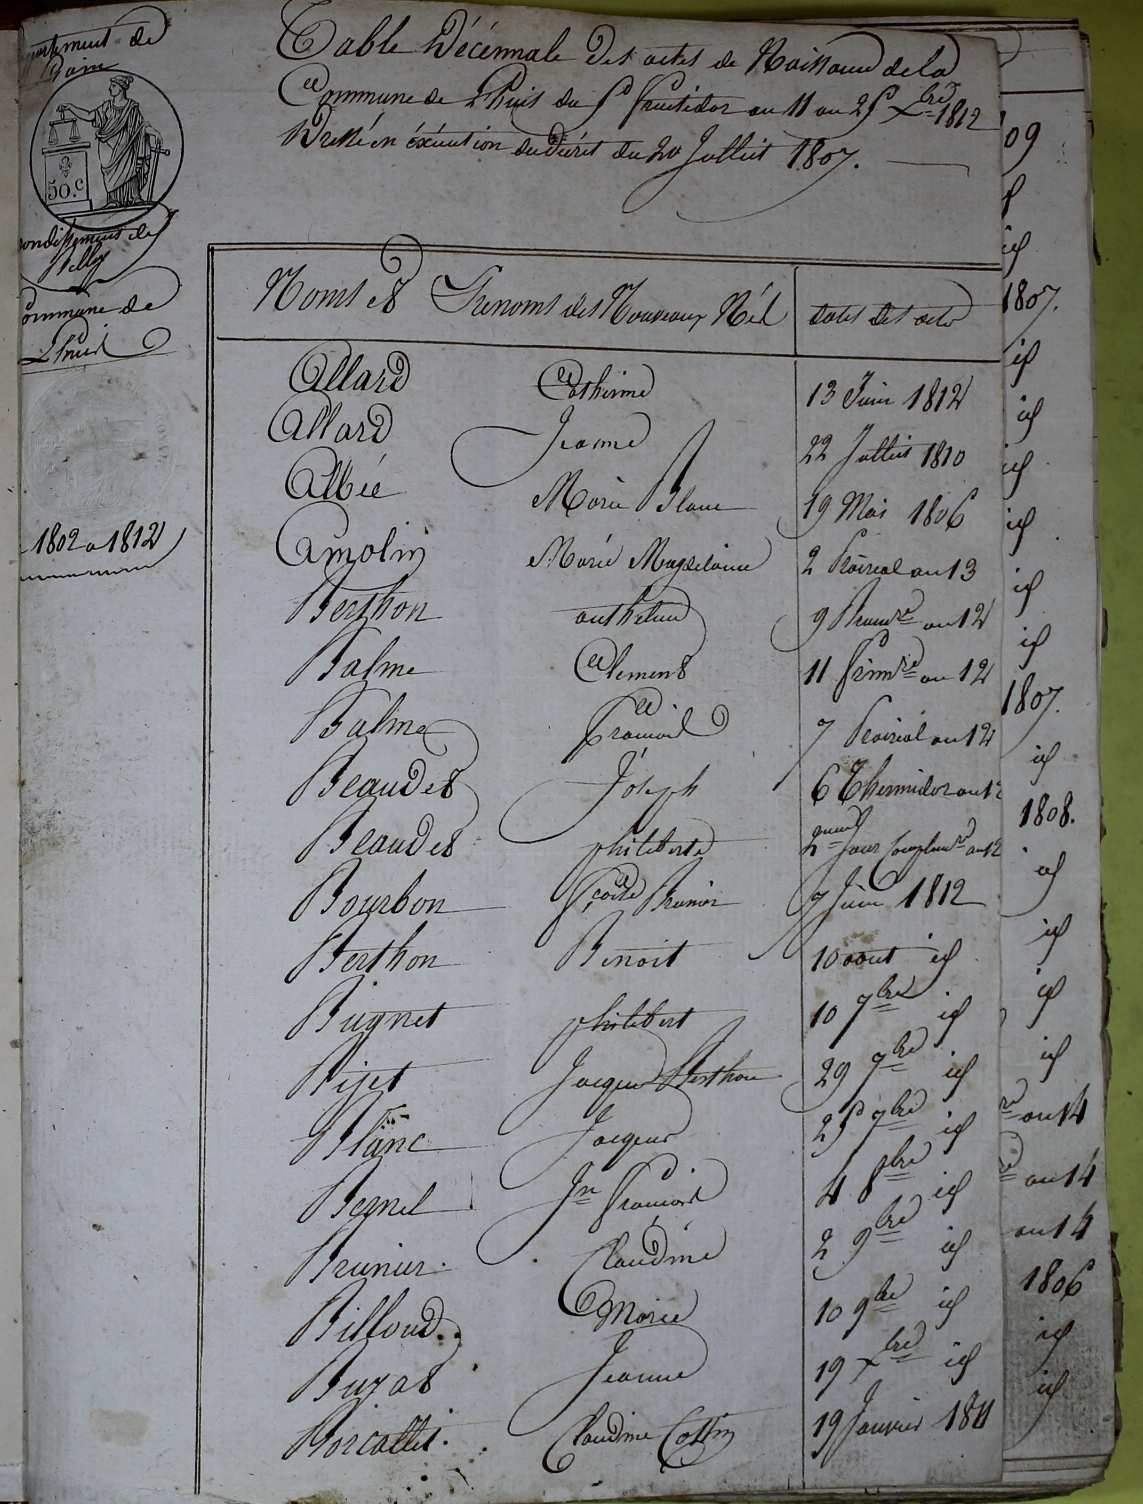 Département de
l'ain
50.c
arrondissement de
Belley
Commune de
Lhuis
1802 a 1812
Table Décennale des actes de Naissance de la
Commune de Lhuis du fructidor an 11 au Xbre 1812
Dressé en éxécution du décret du 20 Juillet 1807.
Noms et Prénoms des Nouveaux Nés dates des actes
Allard Catherine 13 Juin 1812
Allard Jeanne 22 Juillet 1810
Albée Marie Blanc 19 Mai 1806
Amolin Marie Magdelaine 2 Prairial an 13
Berthon anthelme 9 Brumre an 12
Balme Clement 11 frimre an 12
Balme François 7 Prairial an 12
Beaudet Joseph 6 Thermidor an 12
Beaudet philiberte 2 Jour Complemre an 12
Bourbon Brunier 7 Juin 1812
Berthon Benoit 10 aout id
Bugnet philibert 10 7bre id
Pijet Jacques Berthon 29 7bre id
Blanc Jacques 25 7bre id
Bernel Jn François 4 8bre id
Brunier Claudine 2 9bre id
Billoud Marie 10 9bre id
Buyat Jeanne 19 Xbre id
Borcallet Claudine Cottin 19 Janvier 1811
09
id
id
1807.
id
id
id
id
id
id
1807.
id
1808.
id
id
id
id
re an 14
re an 14
an 14
1806
id
id